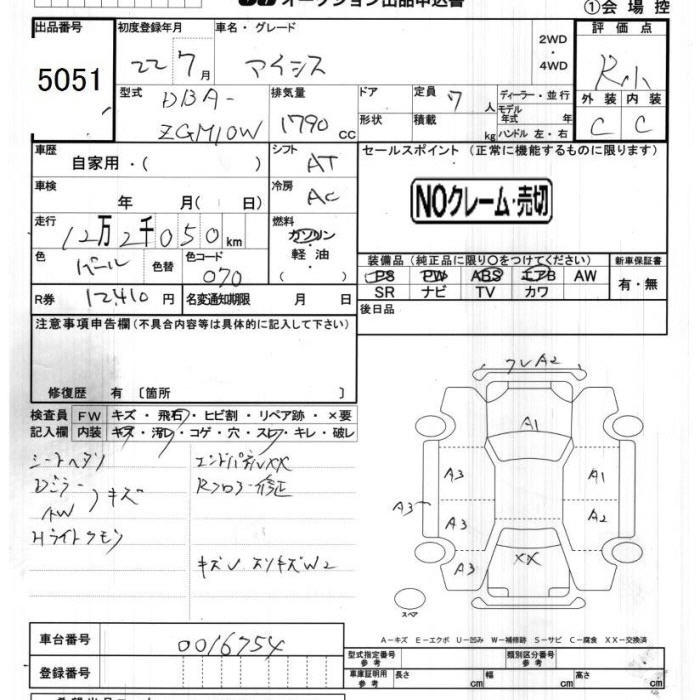 オークション出品申込書
①会場控
出品番号 初度登録年月 車名・グレード 評価点
5051 22 7月 マイシス 2WD・4WD R小
型式 DBA-ZGM10W 排気量 1790cc ドア 定員 7人 ディーラー・並行 外装 内装
形状 積載 kg モデル年式 年 ハンドル 左・右 C C
車歴 自家用・( ) シフト AT セールスポイント (正常に機能するものに限ります)
車検 年 月( 日) 冷房 AC NOクレーム・売切
走行 12万2千050km 燃料 ガソリン・軽油・( )
色 パール 色替 色コード 070 装備品(純正品に限り〇をつけてください) 新車保証書
PS PW ABS エアB AW 有・無
SR ナビ TV カワ
R券 12,410円 名変通知期限 月 日 後日品
注意事項申告欄(不具合内容等は具体的に記入して下さい)
修復歴 有〔箇所 〕
検査員 FW キズ・飛石・ヒビ割・リペア跡・×要
記入欄 内装 キズ・汚レ・コゲ・穴・スレ・キレ・破レ
シートヘタリ エンドパネルXX
Dミラー Rフロアー修正
AW キズ
Hライトクモリ
キズU スリキズW2
フレA2
A1
A3 A1
A3 A3 A2
A3 XX
スペア
A-キズ E-エクボ U-凹み W-補修跡 S-サビ C-腐食 XX-交換済
車台番号 0016754
型式指定番号 参考 類別区分番号 参考
登録番号
車庫証明用 参考 長さ cm 幅 cm 高さ cm